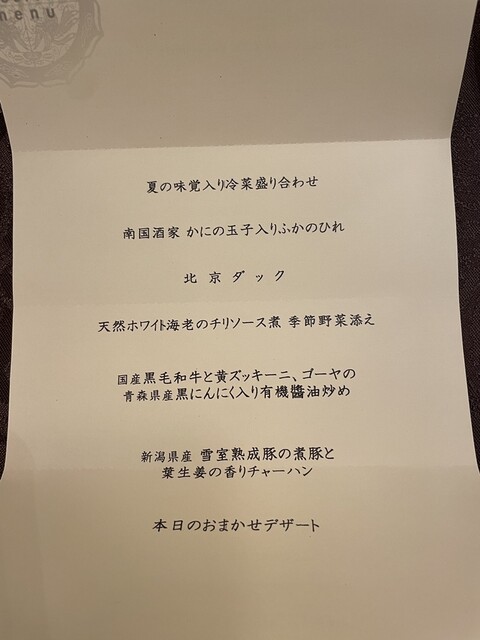 menu
夏の味覚入り冷菜盛り合わせ
南国酒家 かにの玉子入りふかのひれ
北京ダック
天然ホワイト海老のチリソース煮 季節野菜添え
国産黒毛和牛と黄ズッキーニ、ゴーヤの
青森県産黒にんにく入り有機醬油炒め
新潟県産 雪室熟成豚の煮豚と
葉生姜の香りチャーハン
本日のおまかせデザート